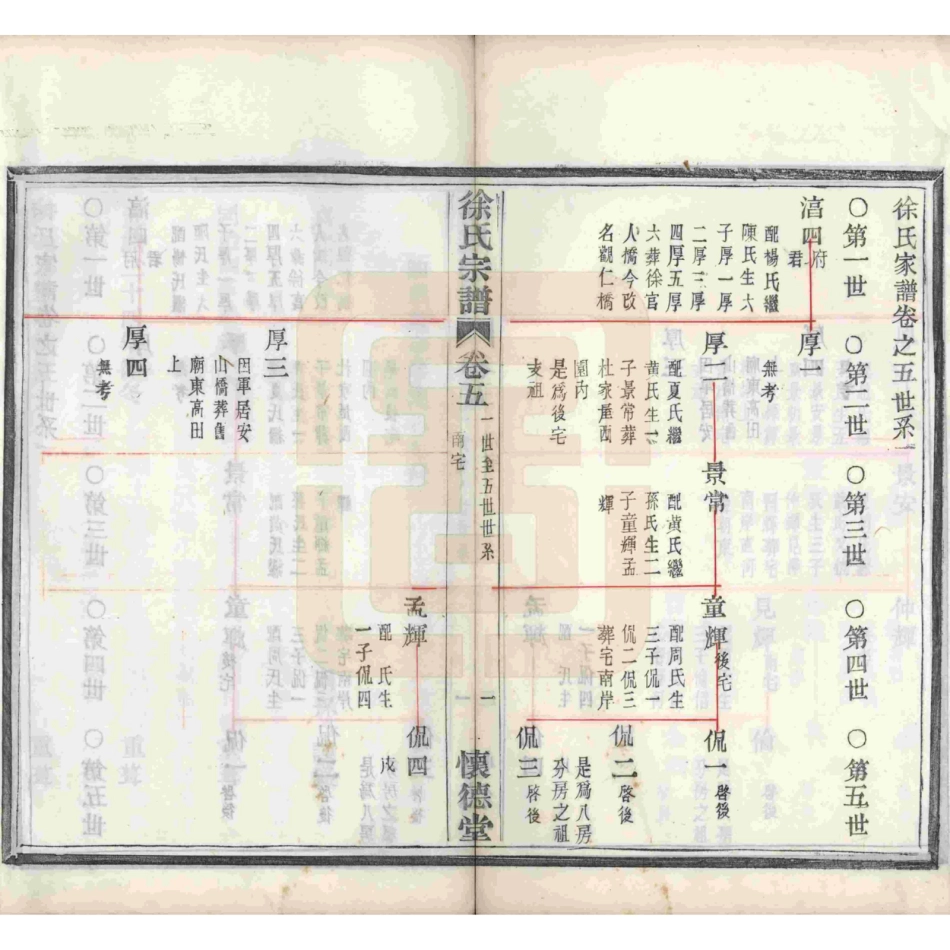 徐氏家譜卷之五世系一
○第一世
○第二世
○第三世
○第四世
○第五世
滈四府君
配楊氏繼
陳氏生六
子厚一厚
二厚三厚
四厚五厚
六葬徐官
人橋今改
名觀仁橋
厚一
無考
厚二
配夏氏繼
黄氏生一
子景常葬
杜家崖西
園內
是爲後宅
支祖
景常
配黄氏繼
孫氏生二
子童輝孟
輝
童輝後宅
配周氏生
三子侃一
侃二侃三
葬宅南岸
侃一啓後
侃二啓後
是爲八房
分房之祖
侃三啓後
徐氏宗譜
卷五
一世至五世世系
兩宅
一
懷德堂
厚三
因軍居安
山橋葬舊
廟東高田
上
厚四
無考
孟輝
配 氏生
一子侃四
侃四
戍